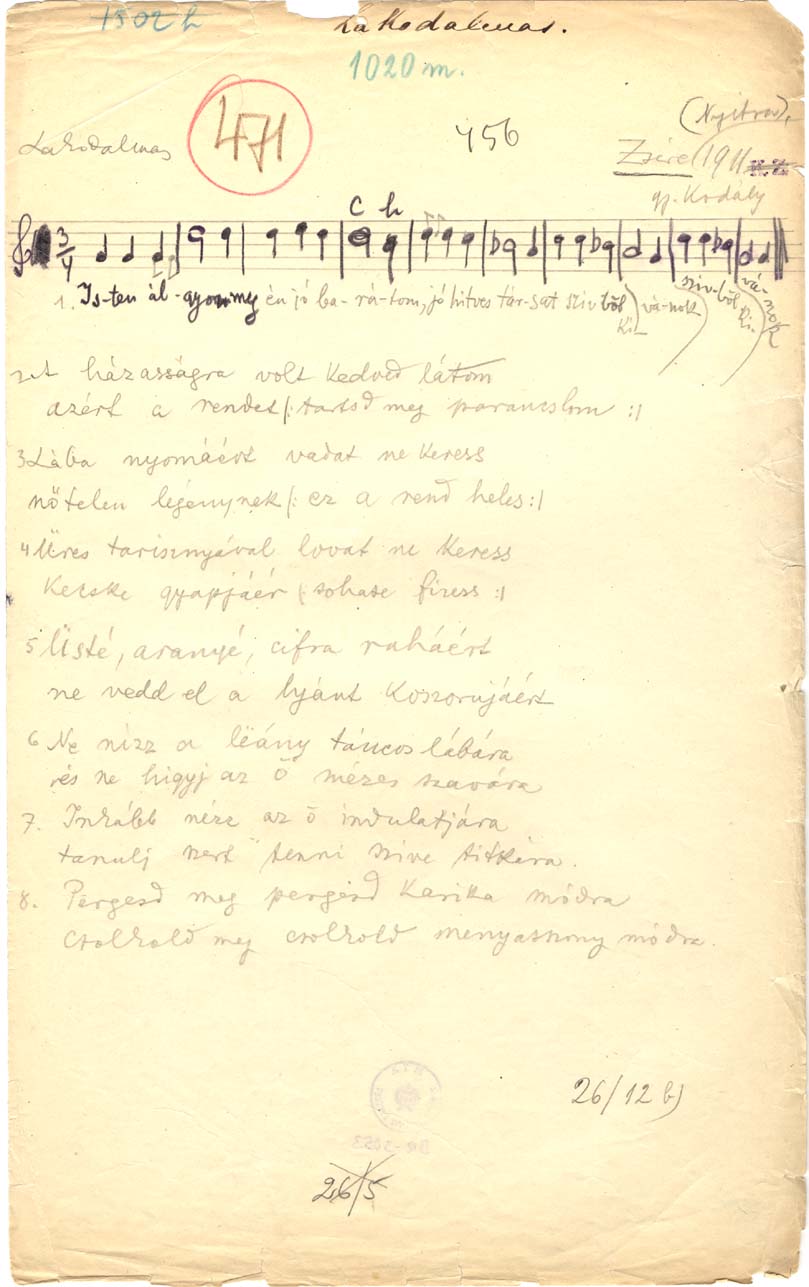 1302 h
Lakodalmas.
1020 m.
Lakodalmas
471
456
(Nyitra),
Zsére 1911
gy. Kodály
C h
3/4
1. Is-ten ál-gyon meg én jó ba-rá-tom, jó hitves társat szivből kí-vá-nok szív-ből kí-vá-nok
2 A házasságra volt kedved látom
azért a rendet /: tartsd meg parancslom :/
3 Lába nyomáért vadat ne keress
nőtelen legénynek /: ez a rend heles :/
4 Üres tarisznyával lovat ne keress
Kecske gyapjáér /: sohase fizess :/
5 Üsté, aranyé, cifra ruháért
ne vedd el a lyánt koszorújáért
6 Ne nízz a lëány táncos lábára
és ne higyj az ő mézes szavára
7. Inkább nézz az ő indulatjára
tanulj szert tenni szive titkára.
8. Pergesd meg pergesd karika módra
Csolkold meg csolkold menyasszony módra.
26/12 b)
26/5